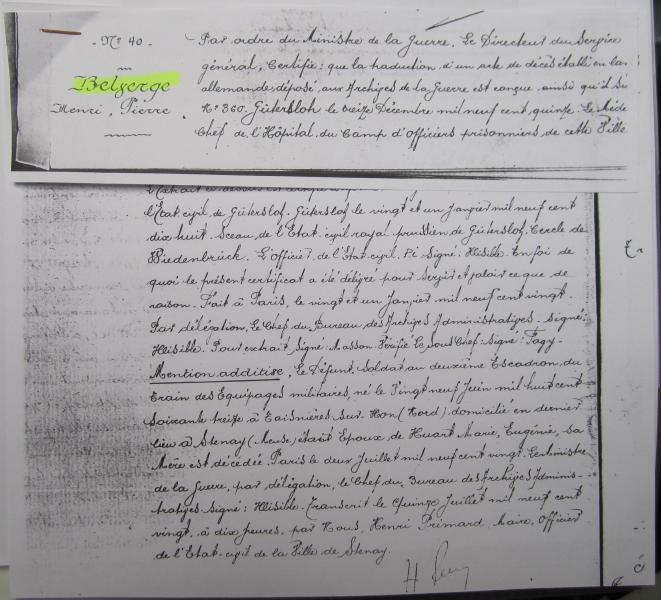 - N° 40 -
Belferge
Henri, Pierre
Par ordre du Ministre de la Guerre, Le Directeur du Service
général, Certifie: que la traduction d'un acte de décès établi en lan
allemande, déposé aux Archives de la Guerre est conçue ainsi qu'il su
N° 360. Gütersloh le treize Décembre mil neuf cent quinze. Le Méde
Chef de l'Hôpital du Camp d'Officiers prisonniers de cette Ville
L'Extrait ci-dessus est certifié
l'Etat civil de Güterslof. Güterslof le vingt et un Janvier mil neuf cent
dix huit. Sceau de l'Etat civil royal prussien de Güterslof. Cercle de
Wiedenbrück. L'officier de l'Etat-civil. Pé signé: Illisible. En foi de
quoi le présent certificat a été délivré pour servir et valoir ce que de
raison. Fait à Paris, le vingt et un Janvier mil neuf cent vingt.
Par délégation, Le Chef du Bureau des Archives Administratives. signé:
Illisible. Pour extrait, signé: Masson. Vérifié Le Sous Chef. signé: Fagy.
Mention additive, Le Défunt, Soldat au deuxième Escadron du
Train des Equipages militaires, né le Vingt neuf Juin mil huit cent
soixante treize à Taisnières sur Hon (Nord) domicilié en dernier
lieu à Stenay (Meuse) était Epoux de Huart Marie, Eugénie, sa
Mère est décédée. Paris le deux Juillet mil neuf cent vingt. Le Ministre
de la Guerre, par délégation, le Chef du Bureau des Archives Adminis-
tratives signé: Illisible. Transcrit le Quinze Juillet mil neuf cent
vingt, à dix heures, par Nous, Henri Primard, Maire, Officier
de l'Etat-civil de la Ville de Stenay.